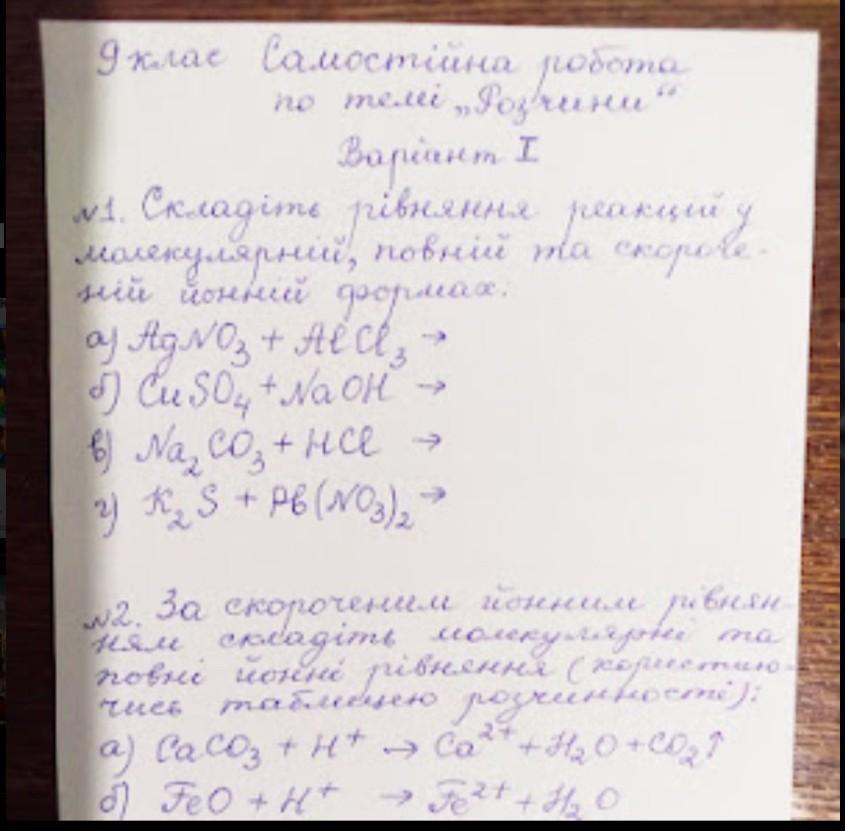 9 клас Самостійна робота
по темі „Розчини“
Варіант I
№1. Складіть рівняння реакцій у
молекулярній, повній та скороче-
ній йонній формах:
а) AgNO₃ + AlCl₃ →
б) CuSO₄ + NaOH →
в) Na₂CO₃ + HCl →
г) K₂S + Pb(NO₃)₂ →
№2. За скороченим йонним рівнян-
ням складіть молекулярні та
повні йонні рівняння (користую-
чись таблицею розчинності):
а) CaCO₃ + H⁺ → Ca²⁺ + H₂O + CO₂↑
б) FeO + H⁺ → Fe²⁺ + H₂O